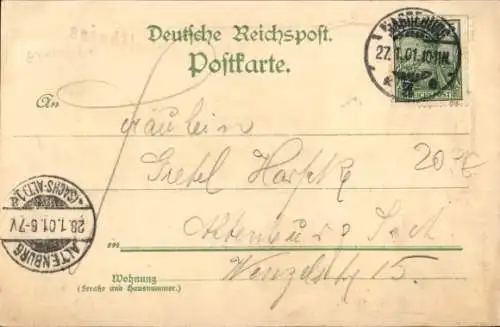 Deutsche Reichspost.
Postkarte.
MAGDEBURG
27.1.01.10-11N.
An
Fräulein
Gretel
20
in
Altenburg
Wenzelstr 15.
Wohnung
(Straße und Hausnummer.)
ALTENBURG
(SACHS-ALT.)
28.1.01.6-7V.